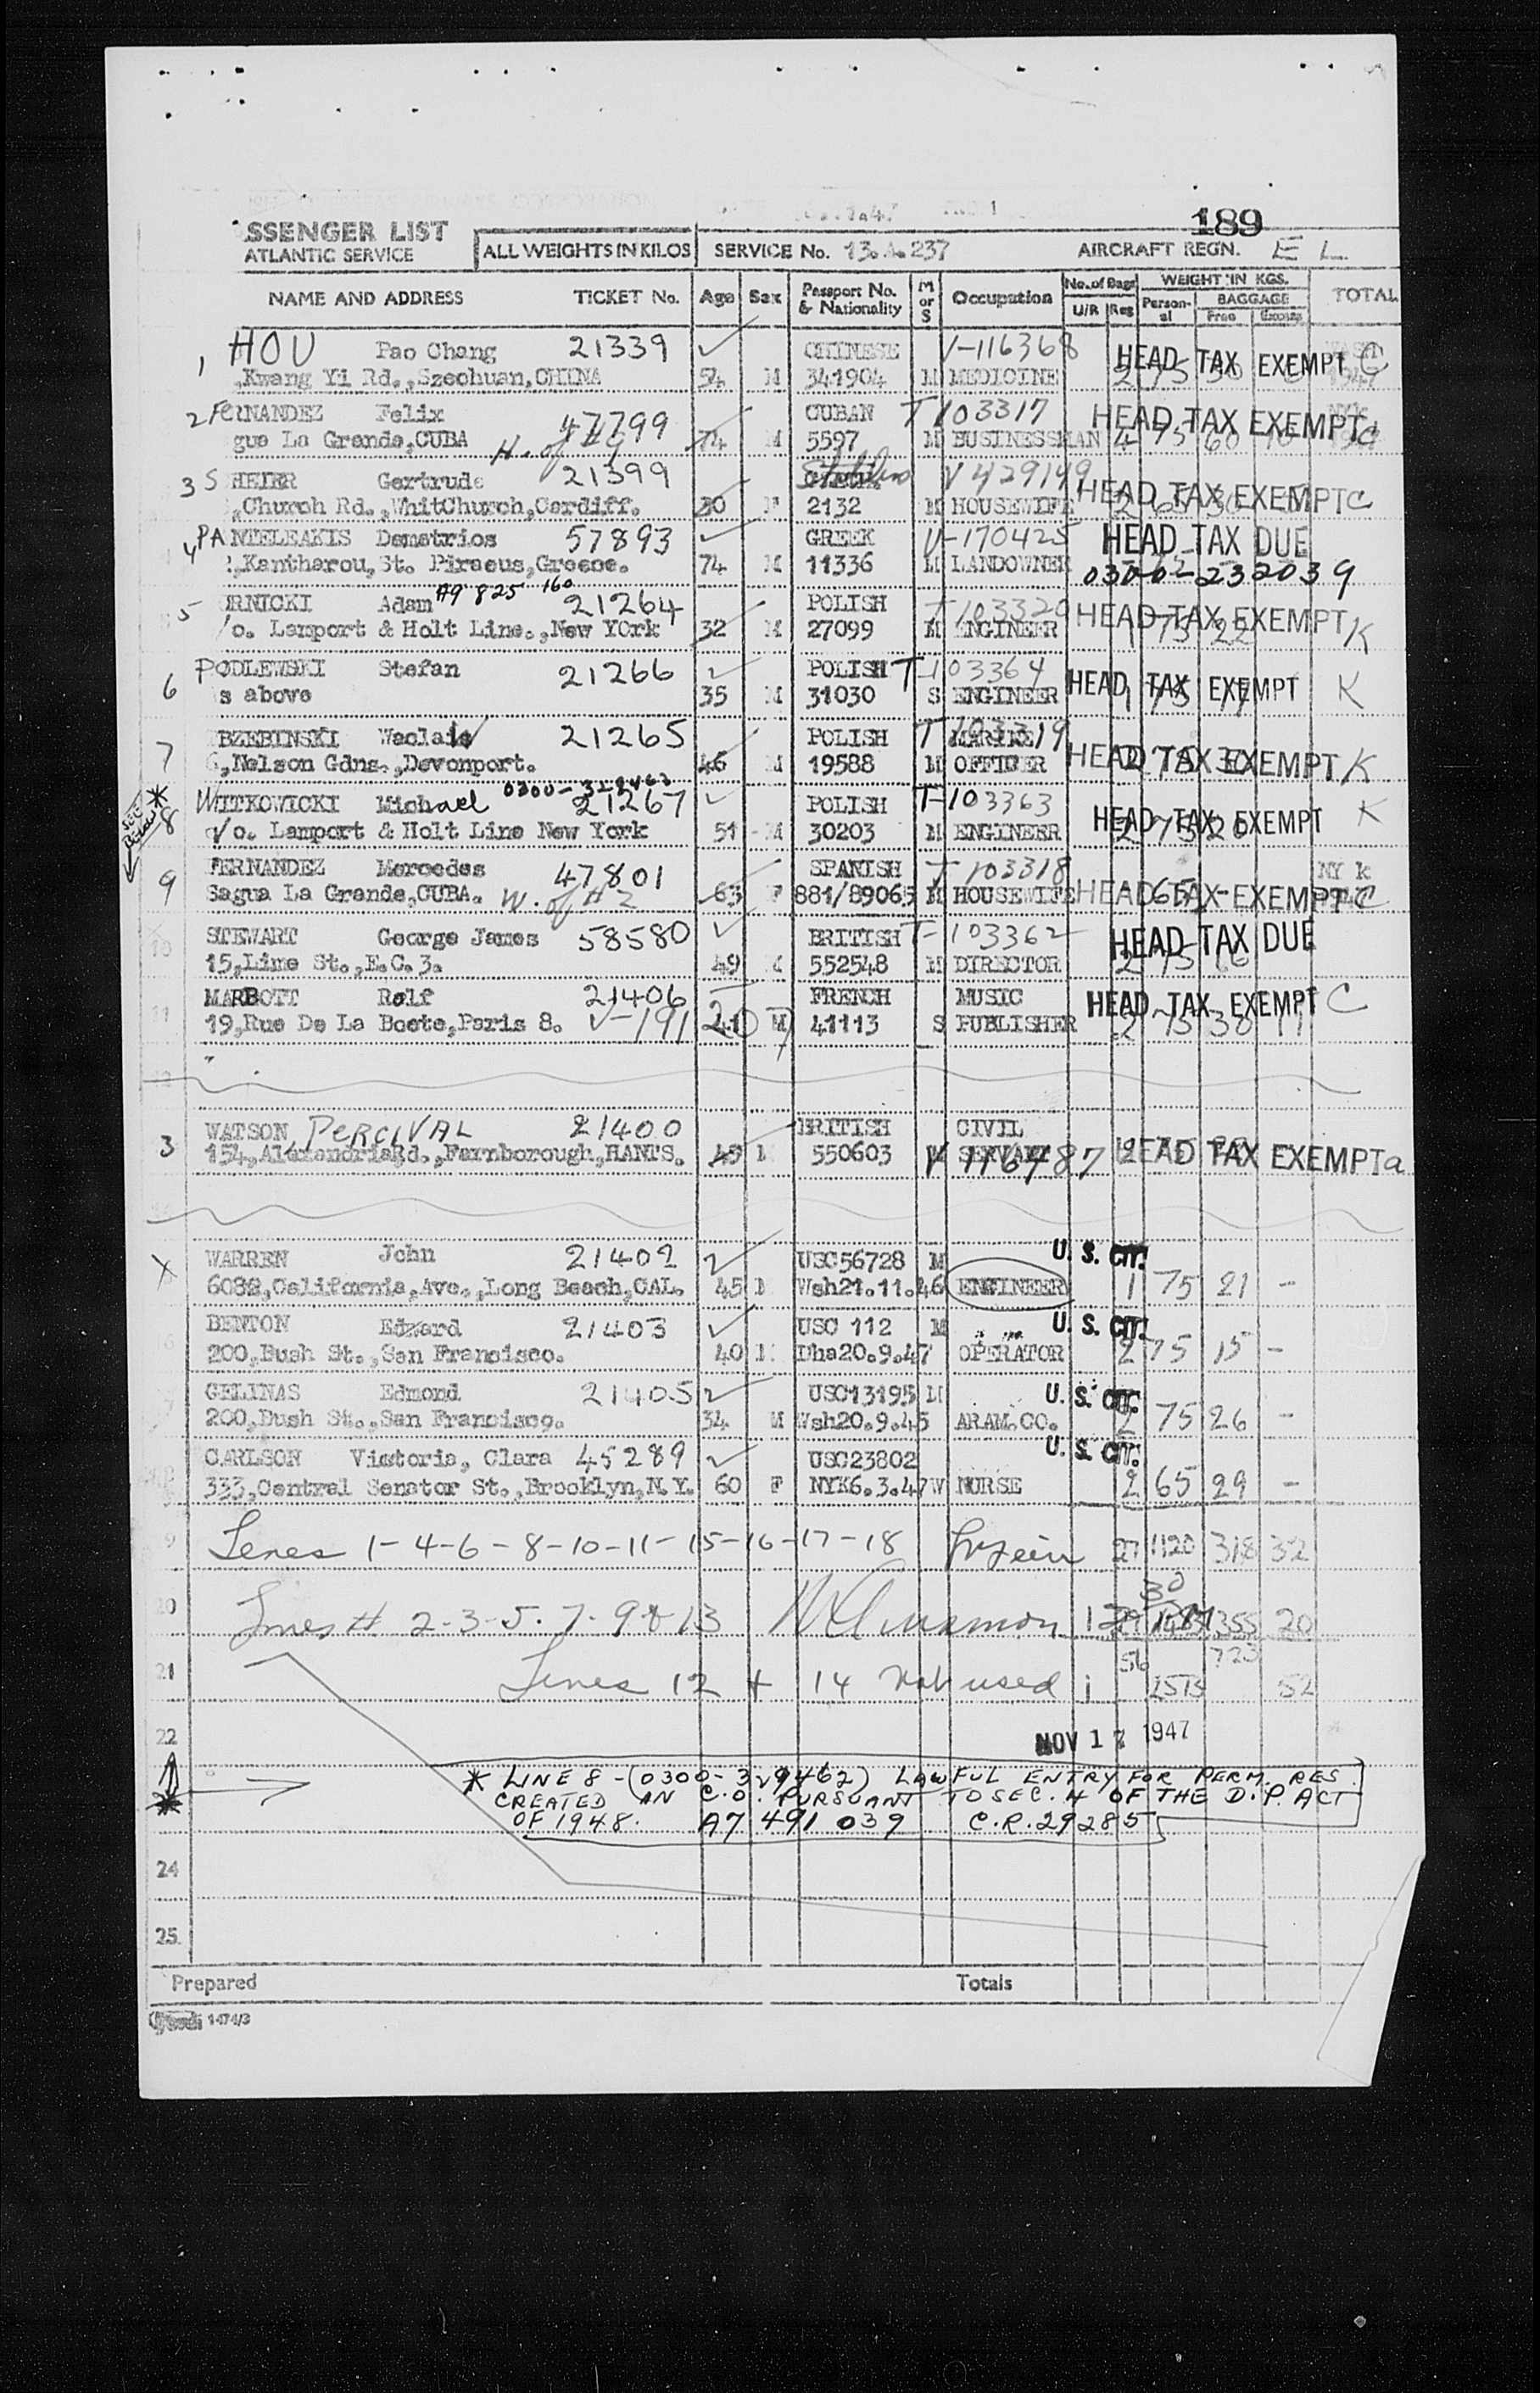 189
SSENGER LIST
ATLANTIC SERVICE
ALL WEIGHTS IN KILOS
SERVICE No. 13.A.237
AIRCRAFT REGN. E L
NAME AND ADDRESS TICKET No. Age Sex Passport No. & Nationality M or S Occupation No. of Bags U/R Reg WEIGHT IN KGS. Person-al BAGGAGE Free Excess TOTAL
1 HOU Pao Chang 21339 CHINESE V-116368 HEAD TAX EXEMPT C
,Kwang Yi Rd.,Szechuan,CHINA 54 M 341904 M MEDICINE
2 FERNANDEZ Felix 47799 CUBAN T 103317 HEAD TAX EXEMPT C
gua La Grande,CUBA H. of 74 M 5597 M BUSINESSMAN
3 S HEIER Gertrude 21399 V 429149 HEAD TAX EXEMPT C
,Church Rd.,WhitChurch,Cardiff. 30 F 2132 M HOUSEWIFE
4 PANTELEAKIS Demetrios 57893 GREEK V-170425 HEAD TAX DUE
,Kantharou,St. Piraeus,Greece. 74 M 11336 M LANDOWNER 0300-232039
A9 825 160
5 ORNICKI Adam 21264 POLISH T-103320 HEAD TAX EXEMPT K
/o. Lamport & Holt Line.,New YOrk 32 M 27099 M ENGINEER
6 PODLEWSKI Stefan 21266 POLISH T-103364 HEAD TAX EXEMPT K
s above 35 M 31030 S ENGINEER
7 BZEBINSKI Waclaw 21265 POLISH T 103319 MARINE HEAD TAX EXEMPT K
,Nelson Gdns.,Devonport. 46 M 19588 M OFFICER
* SEE BELOW
8 WITKOWICKI Michael 21267 POLISH T-103363 HEAD TAX EXEMPT K
c/o. Lamport & Holt Line New York 51 M 30203 M ENGINEER
9 FERNANDEZ Mercedes 47801 SPANISH T 103318 NY k
Sagua La Grande,CUBA. W. of #2 63 F 881/89065 M HOUSEWIFE HEAD TAX EXEMPT C
10 STEWART George James 58580 BRITISH T-103362 HEAD TAX DUE
15,Lime St.,E.C.3. 49 552548 M DIRECTOR
11 MARBOTT Rolf 21406 FRENCH MUSIC HEAD TAX EXEMPT C
19,Rue De La Boete,Paris 8. V-191 M 41113 S PUBLISHER 2 75 30 11
12
3 WATSON, PERCIVAL 21400 BRITISH CIVIL
154,AlexandriaRd.,Farnborough,HANTS. 45 550603 SERVANT V 116487 HEAD TAX EXEMPT a
X WARREN John 21402 USC56728 M U. S. CIT.
6082,California,Ave.,Long Beach,CAL. 45 M Wsh21.11.46 ENGINEER 1 75 21 -
BENTON Edward 21403 USC 112 M U. S. CIT.
200,Bush St.,San Francisco. 40 M Dha20.9.47 OPERATOR 2 75 15 -
GELINAS Edmond 21405 USC13195 M U. S. CIT.
200,Bush St.,San Francisco. 34 M Wsh20.9.45 ARAM.CO. 2 75 26 -
CARLSON Victoria, Clara 45289 USC23802 U. S. CIT.
333,Central Senator St.,Brooklyn,N.Y. 60 F NYK6.3.47 W NURSE 2 65 29 -
9 Lines 1-4-6-8-10-11-15-16-17-18 27 1120 318 32
20 Lines # 2-3-5-7-9&13 355 20
56 723
21 Lines 12 + 14 Not used 52
22 NOV 17 1947
* LINE 8 - (0300-329462) LAWFUL ENTRY FOR PERM. RES.
CREATED AN C.O. PURSUANT TO SEC. 4 OF THE D.P. ACT
OF 1948. A7 491 039 C.R. 29285
24
25.
Prepared Totals
1474/3